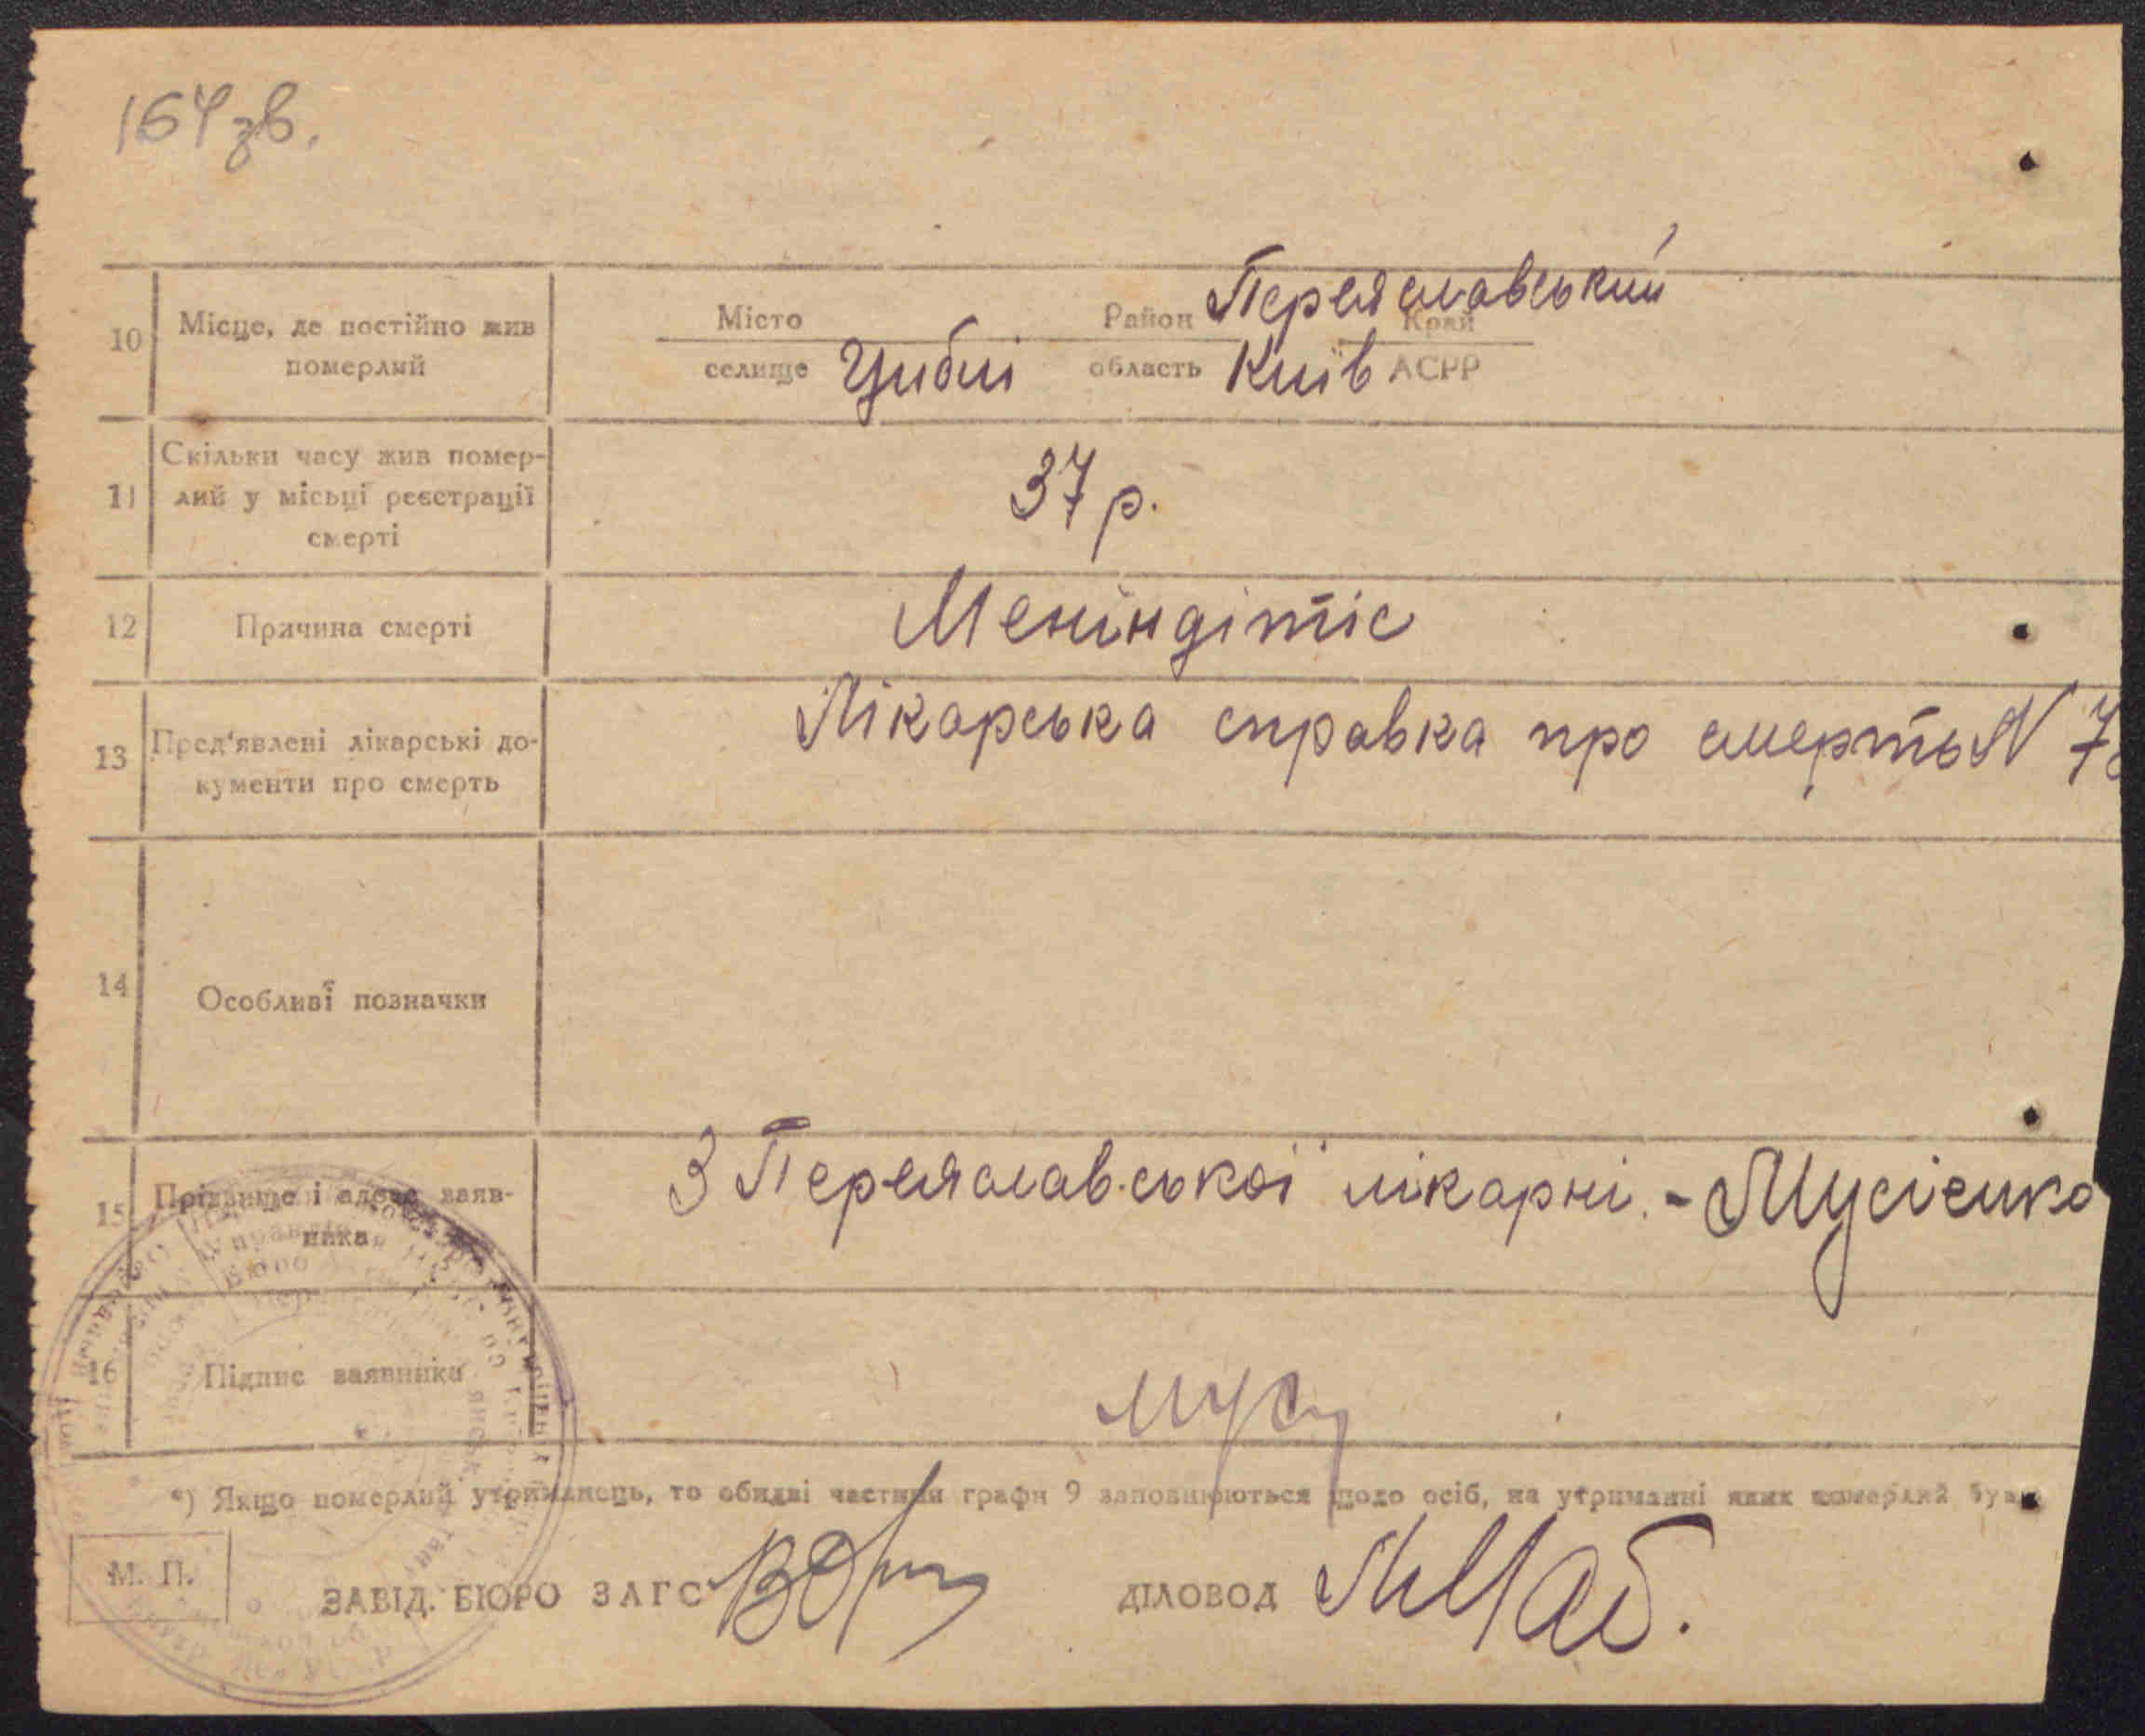 164 зв.
Переяславський
10 Місце, де постійно жив Місто Район Край
померлий селище Циблі область Київ АСРР
Скільки часу жив помер-
11 лий у місьці реєстрації 37 р.
смерті
12 Причина смерті Менінгітіс
Лікарська справка про смерть N 7
13 Пред'явлені лікарські до-
кументи про смерть
14 Особливі позначки
З Переяславської лікарні. - Мусієнко
15 Прізвище і адреса заяв-
ника
16 Підпис заявника Мус
*) Якщо померлий утриманець, то обидві частини графи 9 заповнюються щодо осіб, на утриманні яких померлий був
М. П. ЗАВІД. БЮРО ЗАГС ДІЛОВОД